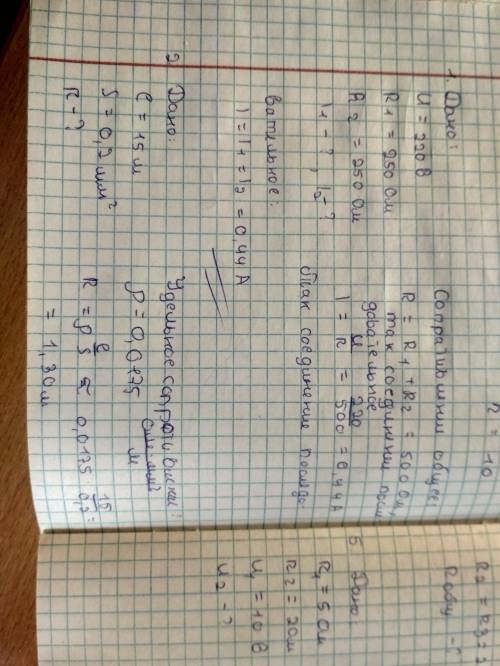 1. Дано:
U = 220 В
R1 = 250 Ом
R2 = 250 Ом
I1 - ? , I2 - ?
R = 10
Сопративлинии общее:
R = R1 + R2 = 500 Ом,
так соединении после
довательное
I = U/R = 220/500 = 0,44 А
так соединение последо
вательное:
I = I1 = I2 = 0,44 А
2. Дано:
l = 15 м
S = 0,2 мм²
R - ?
Удельное сопротивление:
ρ = 0,0175 Ом·мм²/м
R = ρ l/S = 0,0175 15/0,2 =
= 1,3 Ом
R2 = R3 =
Rобщ - ?
5 Дано:
R1 = 5 Ом
R2 = 2 Ом
U1 = 10 В
U2 - ?